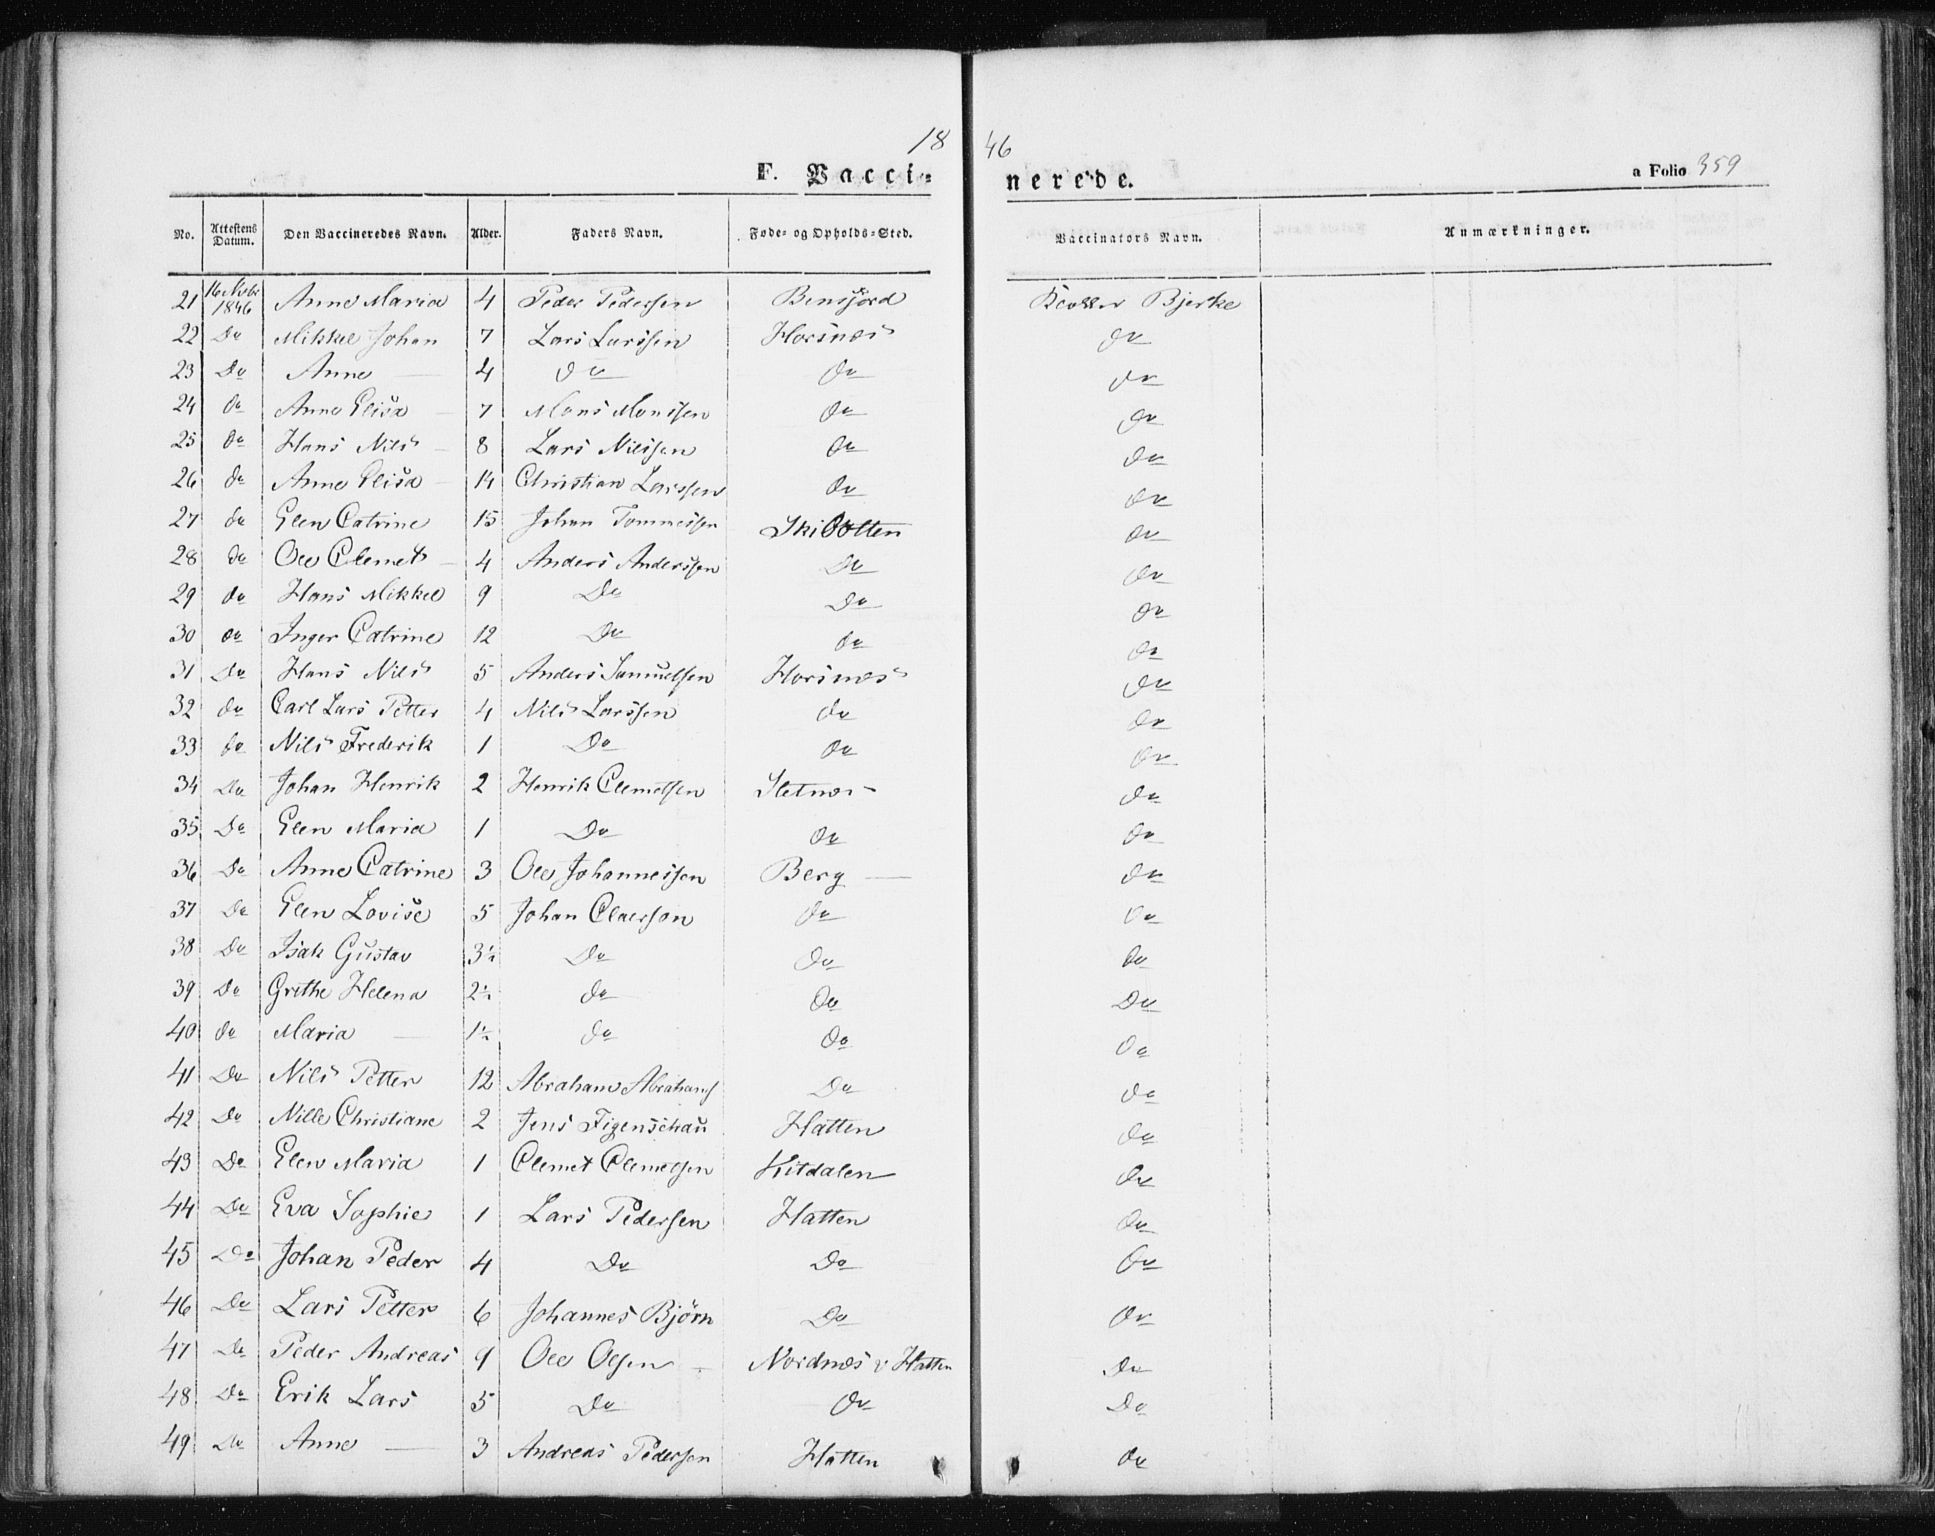 18 46
F. Vacci- nerede. a Folio 359
No. Attestens Datum. Den Vaccineredes Navn. Alder. Faders Navn. Føde- og Opholds-Sted. Vaccinators Navn. Anmærkninger.
21 16 Novbr 1846 Anne Maria 4 Peder Pedersen Bensjord Bjerke
22 Do Mikkel Johan 7 Lars Larssen Horsnæs do
23 Do Anne — 4 do do do
24 do Anne Elisa — 7 Mons Monssen do do
25 do Hans Nils — 8 Lars Nilssen do do
26 do Anne Elisa — 14 Christian Larssen do do
27 do Elen Catrine 15 Johan Tommessen Skibotten do
28 do Ole Clemet — 4 Anders Anderssen Do do
29 do Hans Mikkel 9 Do Do do
30 do Inger Catrine 12 Do do do
31 Do Hans Nils 5 Anders Samuelsen Horsnæs do
32 do Carl Lars Petter 4 Nils Larssen do do
33 do Nils Frederik 1 Do do do
34 Do Johan Henrik 2 Henrik Clemetsen Sletnæs do
35 Do Elen Maria 1 Do do do
36 Do Anne Catrine 3 Ole Johannessen Berg — do
37 Do Elen Lovise 5 Johan Claerson do do
38 Do Isak Gustav 3½ Do do do
39 Do Grethe Helena 2½ do do Do
40 do Maria — 1½ do do do
41 Do Nils Petter 12 Abraham Abrahams Do do
42 Do Nille Christiane 2 Jens Figenschau Hatten do
43 Do Elen Maria 1 Clemet Clemetsen Kitdalen do
44 Do Eva Sophie 1 Lars Pedersen Hatten do
45 Do Johan Peder 4 Do Do do
46 Do Lars Petter 6 Johannes Bjørn Do do
47 Do Peder Andreas 9 Ole Olsen — Nordnæs v Hatten Do
48 Do Erik Lars 5 Do do Do
49 Do Anne — 3 Andreas Pedersen Hatten do